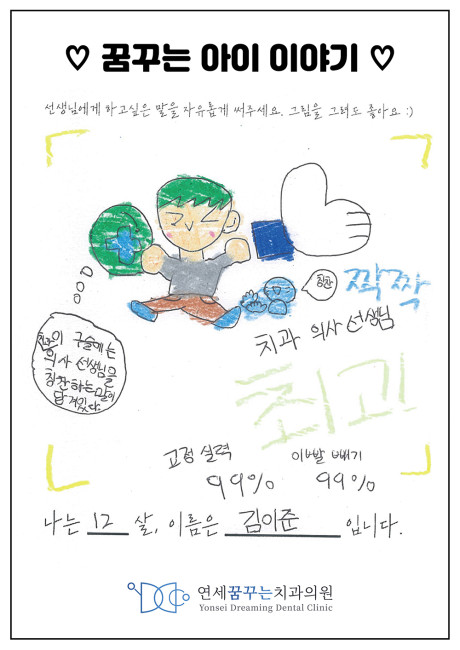 ♡ 꿈꾸는 아이 이야기 ♡
선생님에게 하고싶은 말을 자유롭게 써주세요. 그림을 그려도 좋아요 :)
칭찬
짝짝
치과 의사 선생님
이 구슬에는
의사 선생님을
칭찬하는 말이
담겨있다.
최고
교정 실력
99%
이빨 빼기
99%
나는 12 살, 이름은 김이준 입니다.
연세꿈꾸는치과의원
Yonsei Dreaming Dental Clinic